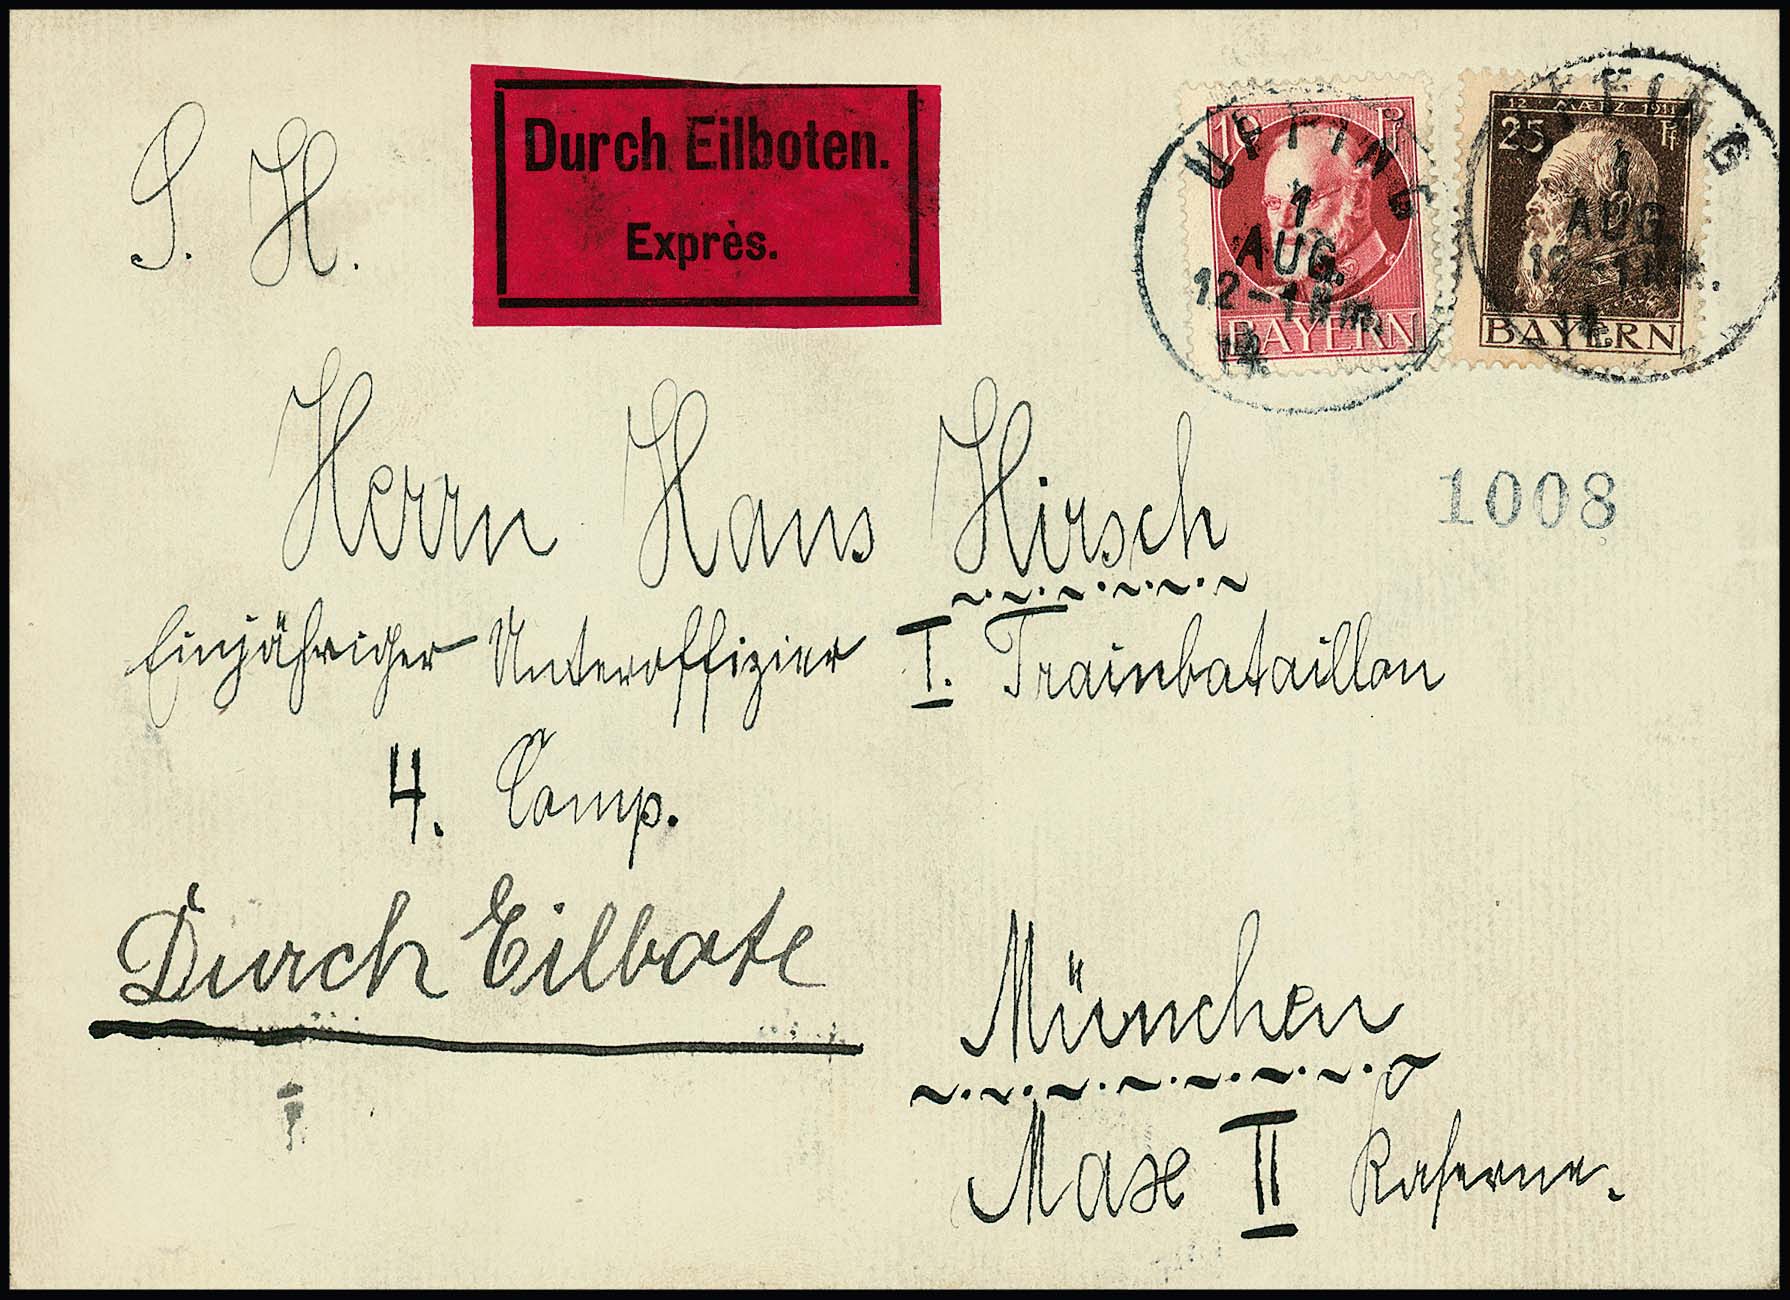 S. H.
Durch Eilboten.
Exprès.
10 Pf
BAYERN
UFFING
1
AUG.
12-1 Nm.
14
12. MÆRZ 1911
25 Pf
BAYERN
UFFING
1
AUG.
12-1 Nm.
14
1008
Herrn Hans Hirsch
Einjähriger Unteroffizier I. Trainbataillon
4. Comp.
Durch Eilbote
München
Max II Kaserne.